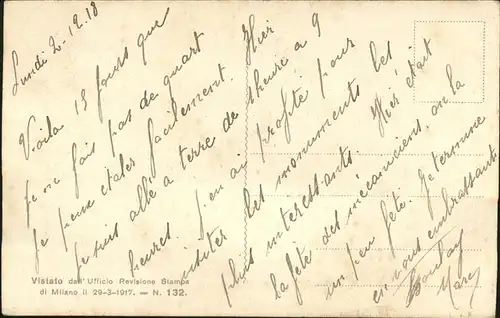 Lundi 2-12-18
Voila 15 jours que
je ne fais pas de quart
Je peux étaler facilement. Hier
je suis allé à terre de 1 heure à 9
heures. J'en ai profité pour
visiter les monuments les
plus interessants. Hier était
la fête des mécaniciens. on la
un peu fêté. Je termine
en vous embrassant
Marc
Vistato dall'Ufficio Revisione Stampa
di Milano il 29-3-1917. — N. 132.